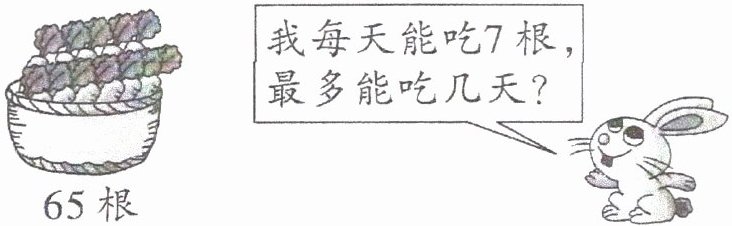 我每天能吃7根，
最多能吃几天？
65根